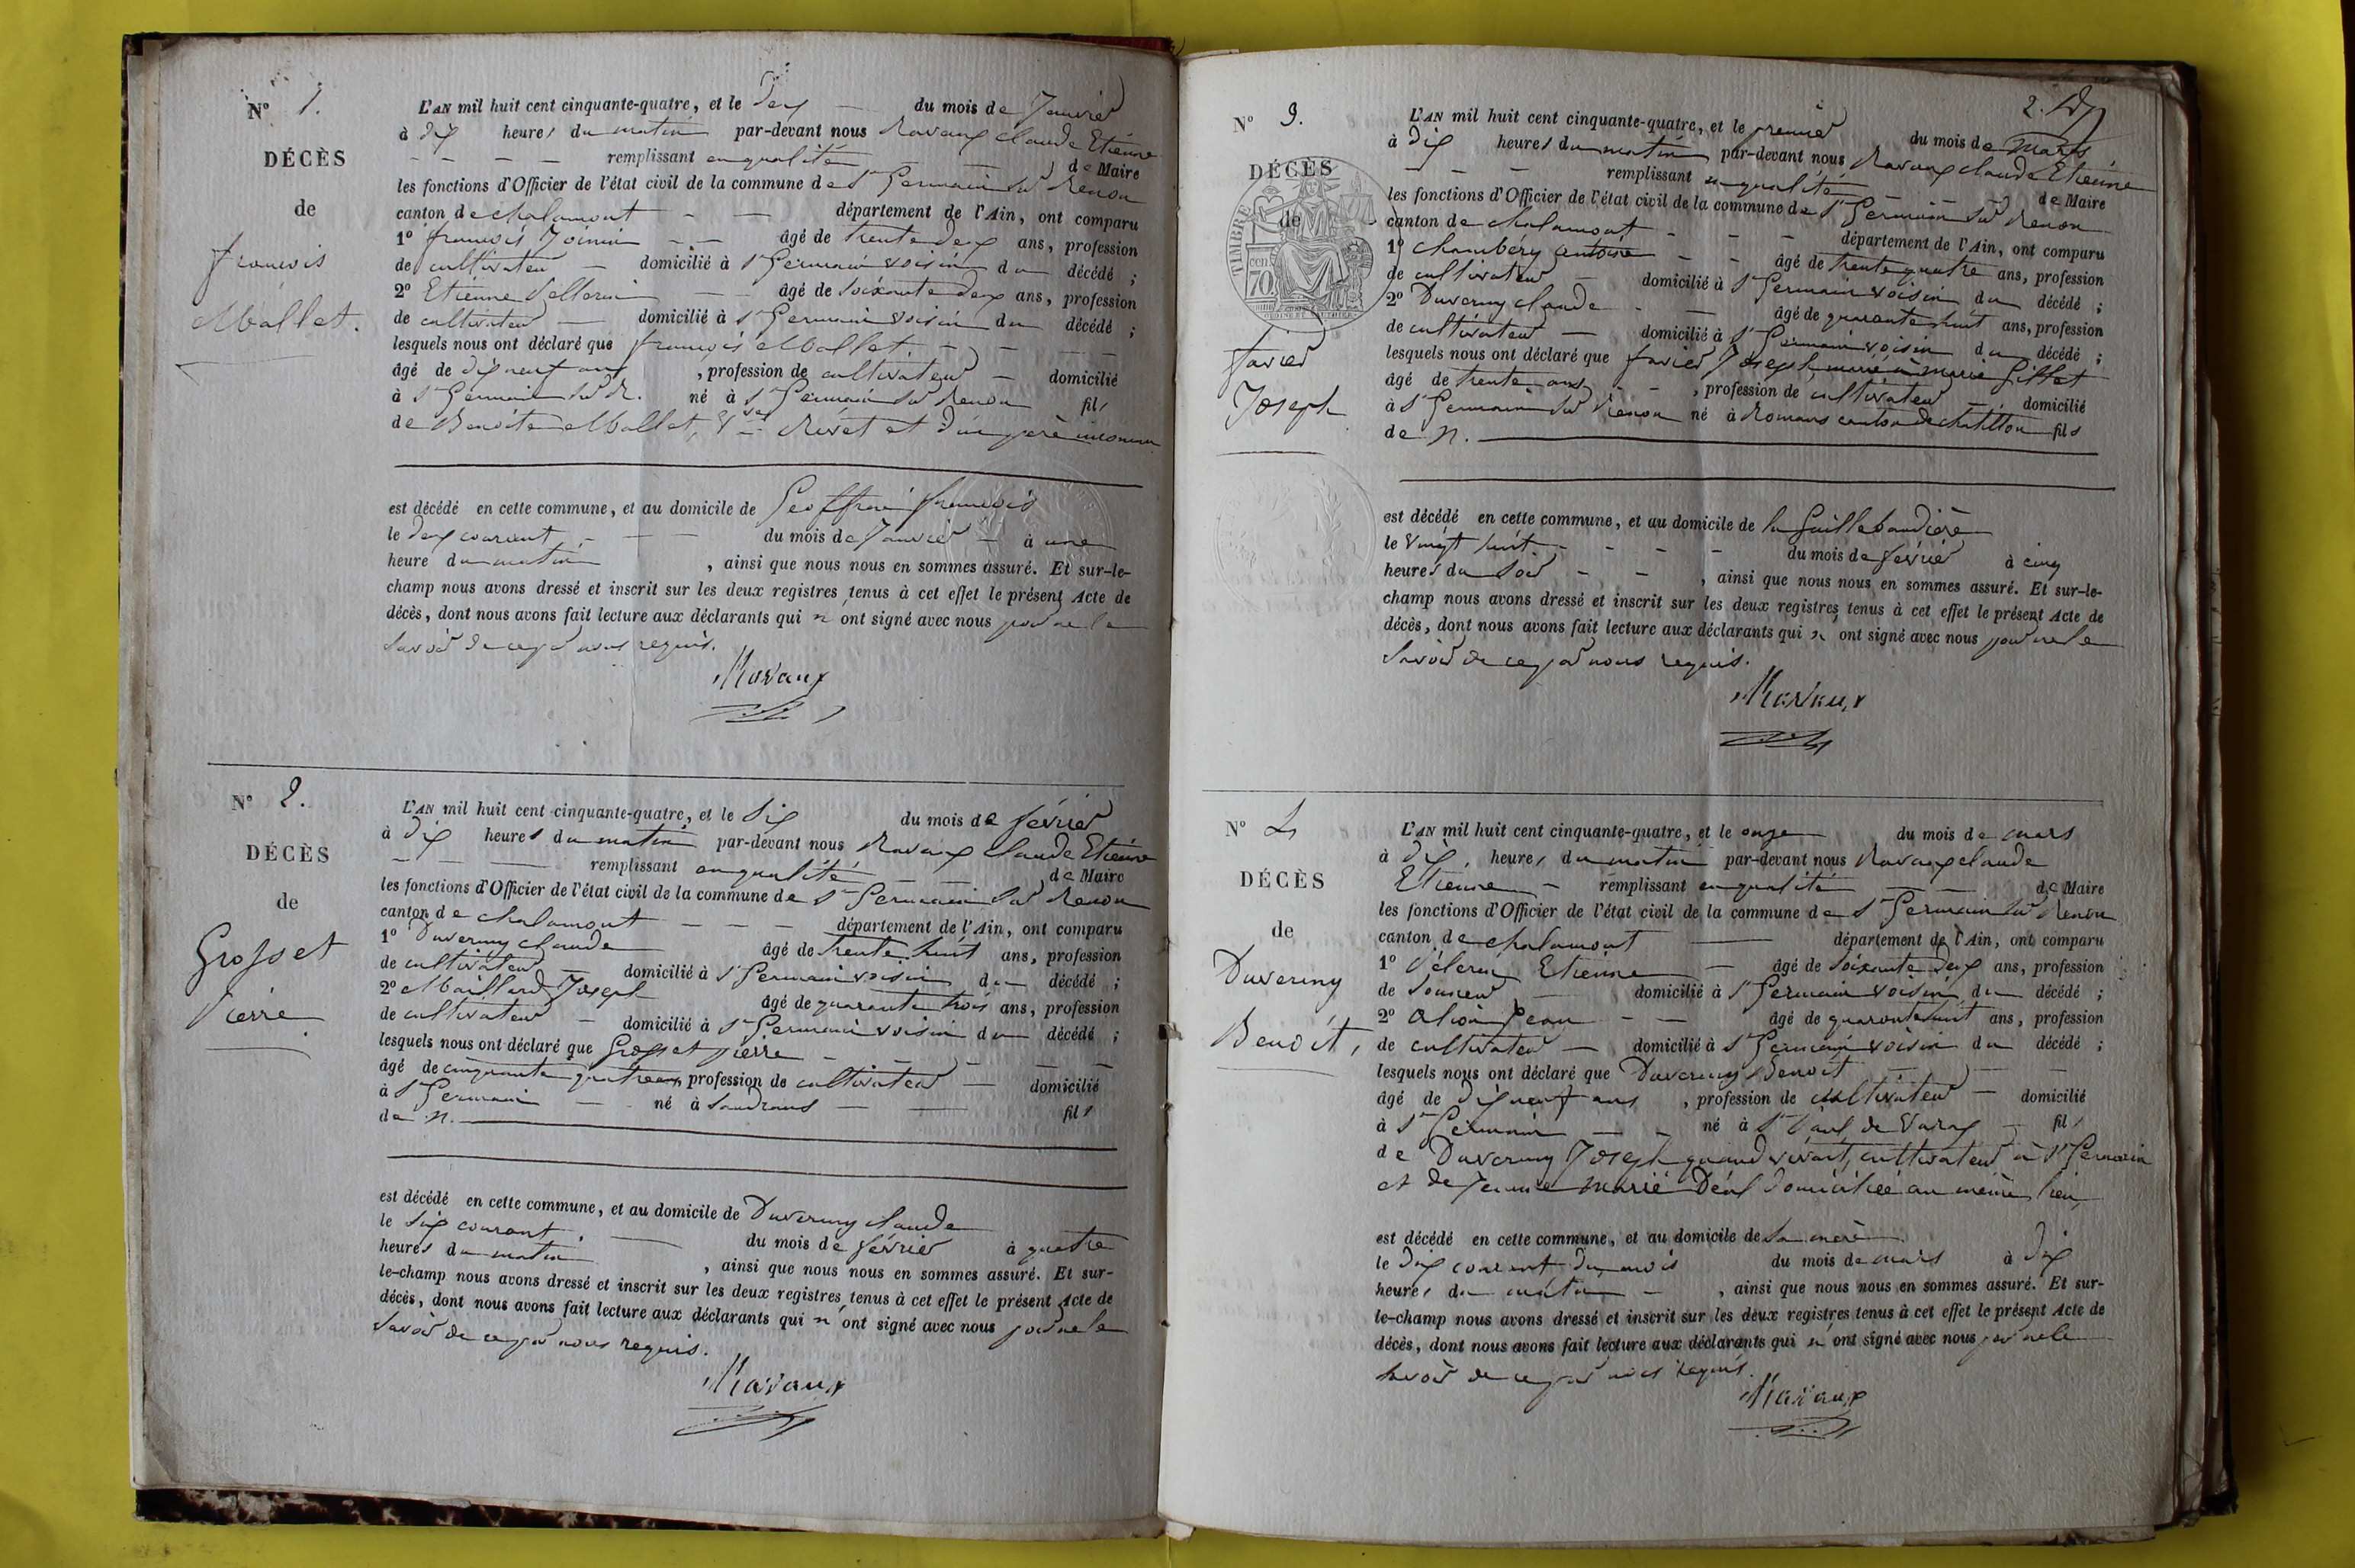 N° 1.
DÉCÈS
de
françois
Mallet.
L'AN mil huit cent cinquante-quatre, et le deux du mois de Janvier
à dix heures du matin par-devant nous Ravaux Claude Etienne
remplissant en qualité de Maire
les fonctions d'Officier de l'état civil de la commune de St Germain sur Renon
canton de chalamont département de l'Ain, ont comparu
1° françois âgé de trente deux ans, profession
de cultivateur domicilié à St Germain voisin du décédé ;
2° Etienne âgé de soixante deux ans, profession
de cultivateur domicilié à St Germain voisin du décédé ;
lesquels nous ont déclaré que françois Mallet
âgé de dix neuf ans, profession de cultivateur domicilié
à St Germain sur R. né à St Germain sur Renon fils
de Benoite Mallet, Ve Rivet et d'un père inconnu
est décédé en cette commune, et au domicile de Geoffrai françois
le deux courant du mois de Janvier à une
heure du matin, ainsi que nous nous en sommes assuré. Et sur-le-
champ nous avons dressé et inscrit sur les deux registres tenus à cet effet le présent Acte de
décès, dont nous avons fait lecture aux déclarants qui n'ont signé avec nous pour ne le
savoir de ce par nous requis.
Ravaux
N° 2.
DÉCÈS
de
Grosset
Pierre
L'AN mil huit cent cinquante-quatre, et le six du mois de février
à dix heures du matin par-devant nous Ravaux Claude Etienne
remplissant en qualité de Maire
les fonctions d'Officier de l'état civil de la commune de St Germain sur Renon
canton de chalamont département de l'Ain, ont comparu
1° Duverny claude âgé de trente huit ans, profession
de cultivateur domicilié à St Germain voisin du décédé ;
2° Maillard Joseph âgé de quarante trois ans, profession
de cultivateur domicilié à St Germain voisin du décédé ;
lesquels nous ont déclaré que Grosset pierre
âgé de cinquante quatre ans, profession de cultivateur domicilié
à St Germain né à Sandrans fils
de n.
est décédé en cette commune, et au domicile de Duverny claude
le six courant du mois de février à quatre
heures du matin, ainsi que nous nous en sommes assuré. Et sur-
le-champ nous avons dressé et inscrit sur les deux registres tenus à cet effet le présent Acte de
décès, dont nous avons fait lecture aux déclarants qui n'ont signé avec nous pour ne le
savoir de ce par nous requis.
Ravaux
2.
N° 3.
DÉCÈS
de
TIMBRE
70
favier
Joseph
L'AN mil huit cent cinquante-quatre, et le premier du mois de Mars
à dix heures du matin par-devant nous Ravaux claude Etienne
remplissant en qualité de Maire
les fonctions d'Officier de l'état civil de la commune de St Germain sur Renon
canton de chalamont département de l'Ain, ont comparu
1° Chambéry antoine âgé de trente quatre ans, profession
de cultivateur domicilié à St Germain voisin du décédé ;
2° Duverny claude âgé de quarante huit ans, profession
de cultivateur domicilié à St Germain voisin du décédé ;
lesquels nous ont déclaré que favier Joseph, marié à marie Gillet
âgé de trente ans, profession de cultivateur domicilié
à St Germain sur Renon né à Romans canton de chatillon fils
de n.
est décédé en cette commune, et au domicile de la
le vingt huit du mois de février à cinq
heures du soir, ainsi que nous nous en sommes assuré. Et sur-le-
champ nous avons dressé et inscrit sur les deux registres tenus à cet effet le présent Acte de
décès, dont nous avons fait lecture aux déclarants qui n'ont signé avec nous pour ne le
savoir de ce par nous requis.
Ravaux
N° 4
DÉCÈS
de
Duverny
Benoît,
L'AN mil huit cent cinquante-quatre, et le onze du mois de mars
à dix heures du matin par-devant nous Ravaux claude
Etienne remplissant en qualité de Maire
les fonctions d'Officier de l'état civil de la commune de St Germain sur Renon
canton de chalamont département de l'Ain, ont comparu
1° Etienne âgé de soixante deux ans, profession
de domicilié à St Germain voisin du décédé ;
2° Jean âgé de quarante huit ans, profession
de cultivateur domicilié à St Germain voisin du décédé ;
lesquels nous ont déclaré que Duverny Benoit
âgé de dix neuf ans, profession de cultivateur domicilié
à St Germain né à St Paul de Varax fils
de Duverny Joseph quand vivait, cultivateur à St Germain
et de Jeanne Marie Déal domiciliée au même lieu
est décédé en cette commune, et au domicile de sa mère
le dix courant du mois du mois de mars à dix
heures du matin, ainsi que nous nous en sommes assuré. Et sur-
le-champ nous avons dressé et inscrit sur les deux registres tenus à cet effet le présent Acte de
décès, dont nous avons fait lecture aux déclarants qui n'ont signé avec nous pour ne le
savoir de ce par nous requis.
Ravaux